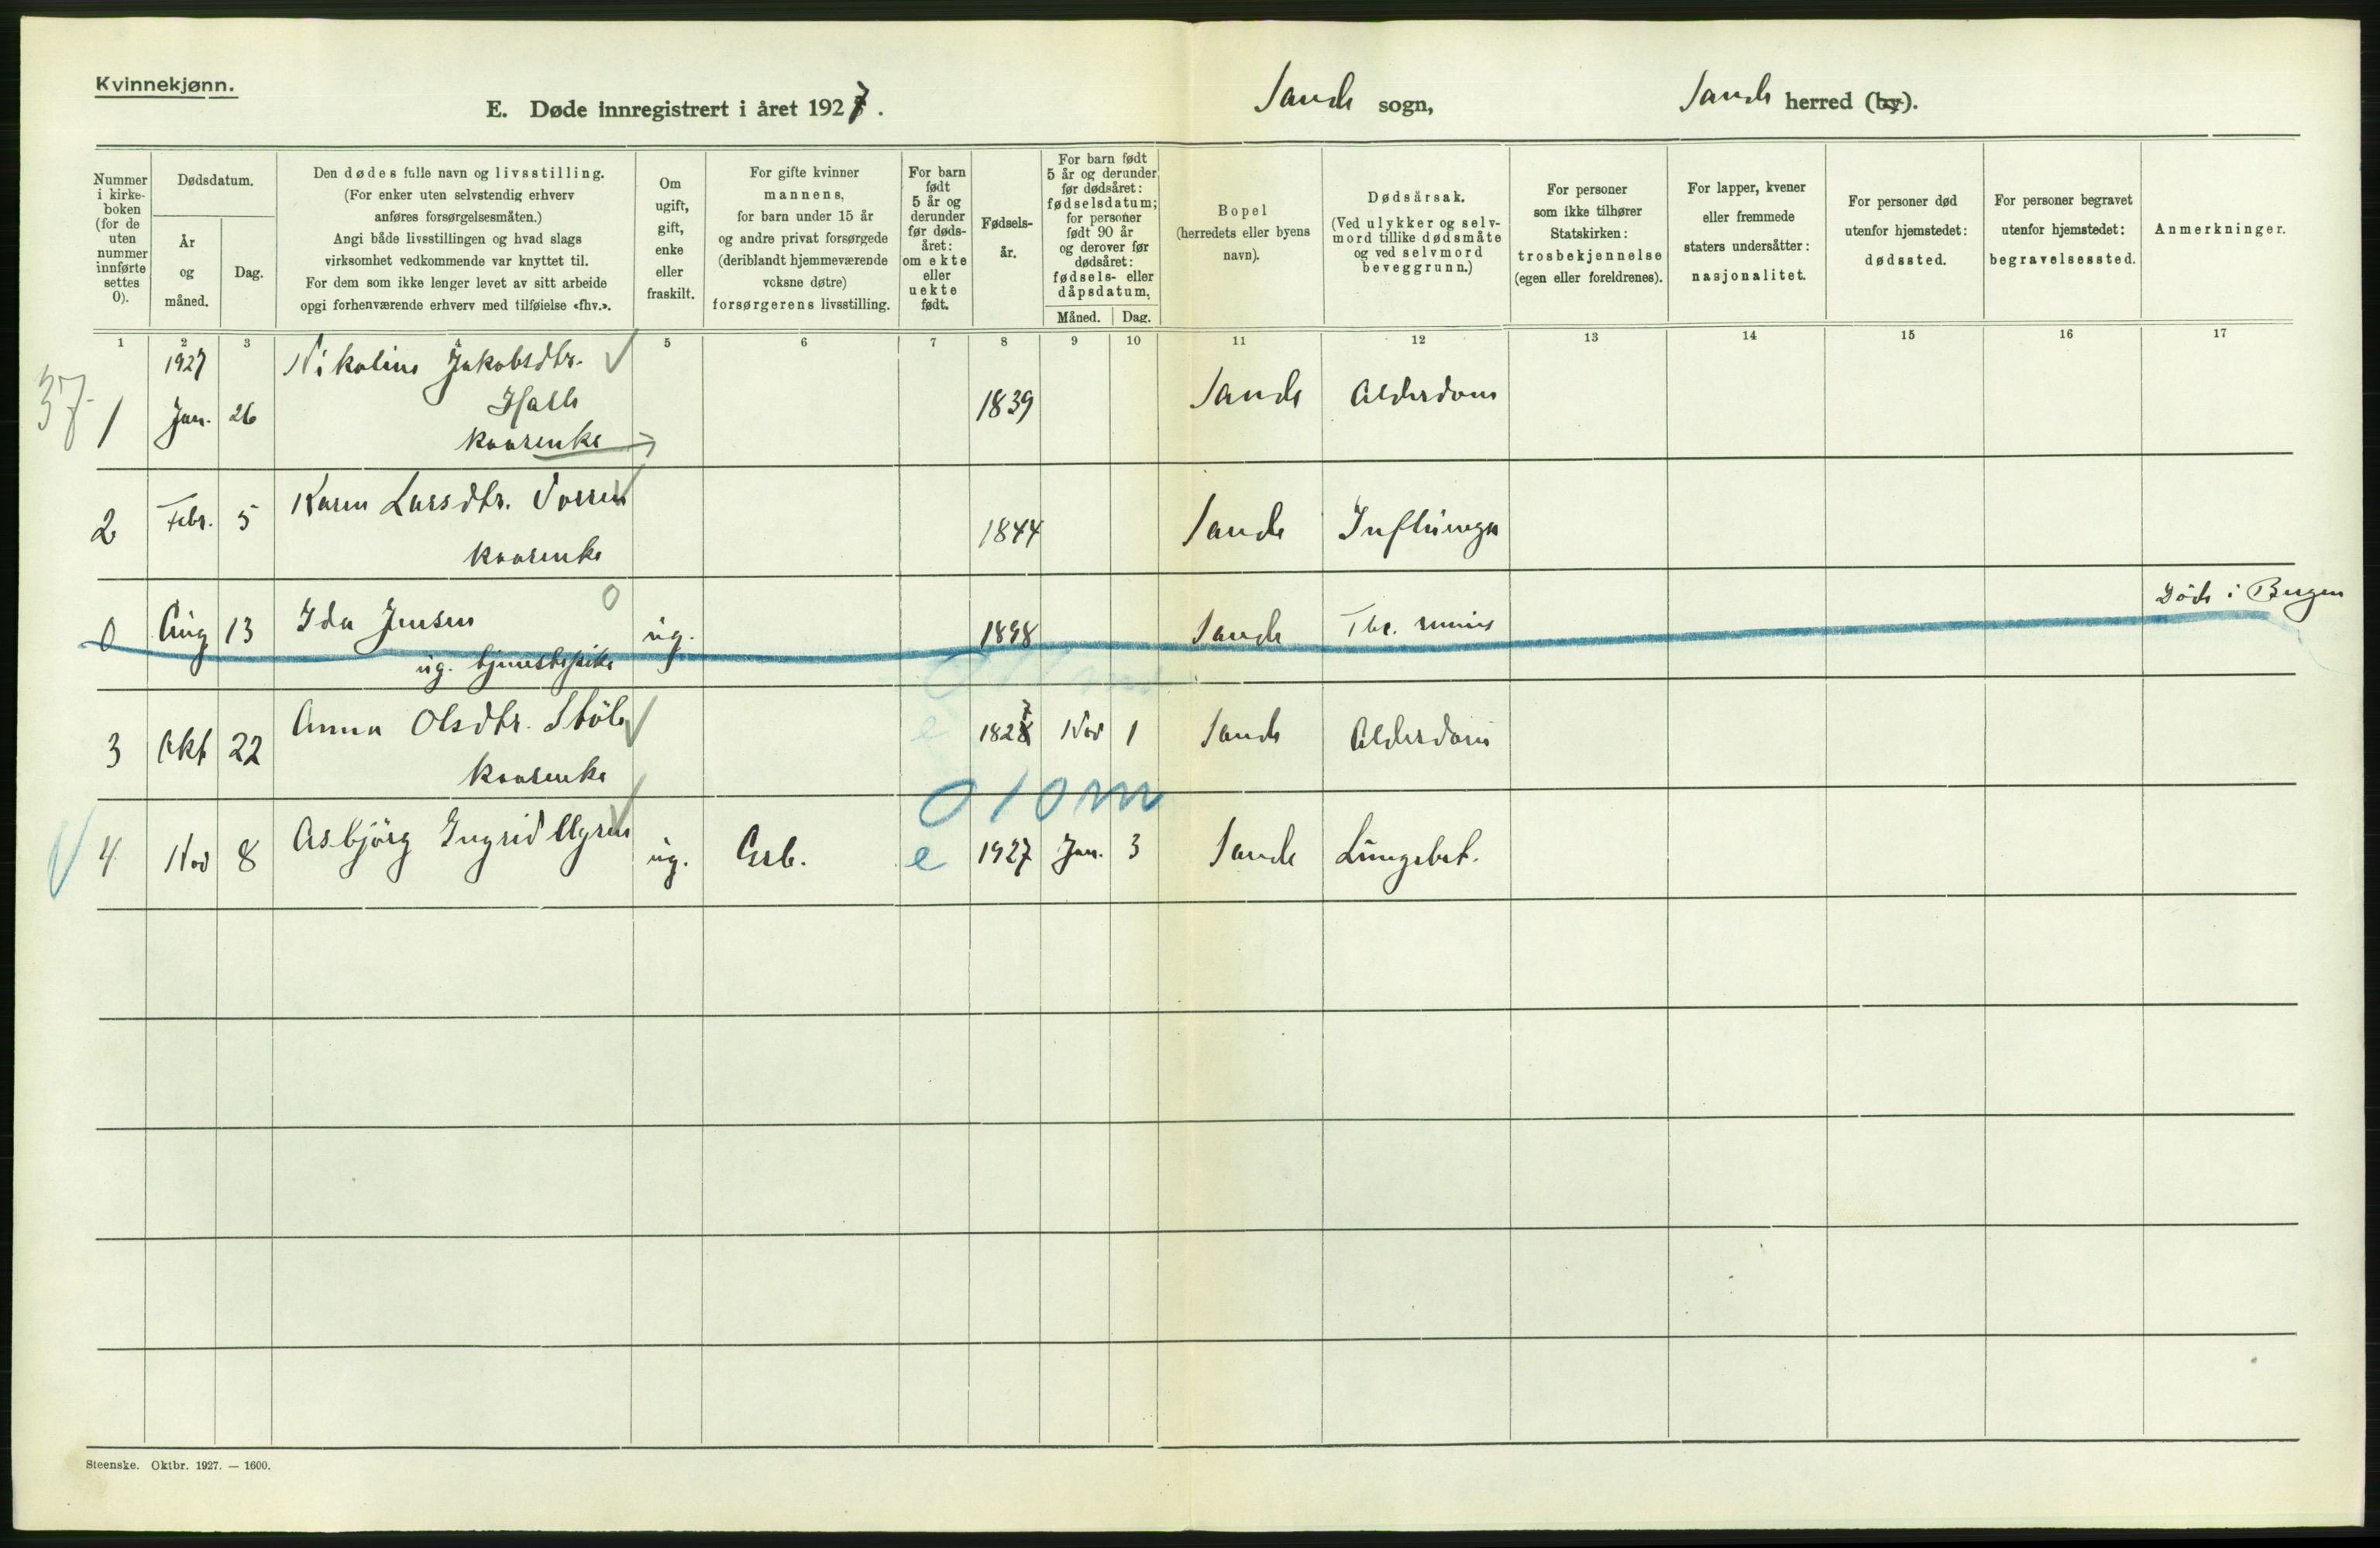 Kvinnekjønn.
E. Døde innregistrert i året 1927.
Sande sogn,
Sande herred (by).
Nummer i kirke-boken (for de uten nummer innførte settes 0).
Dødsdatum.
År og måned.
Dag.
Den dødes fulle navn og livsstilling.
(For enker uten selvstendig erhverv
anføres forsørgelsesmåten.)
Angi både livsstillingen og hvad slags
virksomhet vedkommende var knyttet til.
For dem som ikke lenger levet av sitt arbeide
opgi forhenværende erhverv med tilføielse «fhv.».
Om ugift, gift, enke eller fraskilt.
For gifte kvinner
mannens,
for barn under 15 år
og andre privat forsørgede
(deriblandt hjemmeværende
voksne døtre)
forsørgerens livsstilling.
For barn født 5 år og derunder før døds-året: om ekte eller uekte født.
Fødsels-år.
For barn født
5 år og derunder
før dødsåret:
fødselsdatum;
for personer
født 90 år
og derover før
dødsåret:
fødsels- eller
dåpsdatum.
Måned. Dag.
Bopel
(herredets eller byens
navn).
Dødsårsak.
(Ved ulykker og selv-
mord tillike dødsmåte
og ved selvmord
beveggrunn.)
For personer
som ikke tilhører
Statskirken:
trosbekjennelse
(egen eller foreldrenes).
For lapper, kvener
eller fremmede
staters undersåtter:
nasjonalitet.
For personer død
utenfor hjemstedet:
dødssted.
For personer begravet
utenfor hjemstedet:
begravelsessted.
Anmerkninger.
1 2 3 4 5 6 7 8 9 10 11 12 13 14 15 16 17
37
1927 Nikoline Jakobsdtr.
1 Jan. 26 Halle 1839 Sande Alderdom
kaarenke
2 Febr. 5 Karen Larsdtr. Vorren 1844 Sande Influenza
kaarenke
0
0 Aug 13 Ida Jensen ug. 1898 Sande Tbc. Døde i Bergen
ug. tjenestepike
3 Okt 22 Anna Olsdtr. Støle 1827 Nov 1 Sande Alderdom
kaarenke
0 10 m
4 Nov 8 Asbjörg Ingrid ug. Arb. e 1927 Jan. 3 Sande Lungebet.
Steenske. Oktbr. 1927. — 1600.